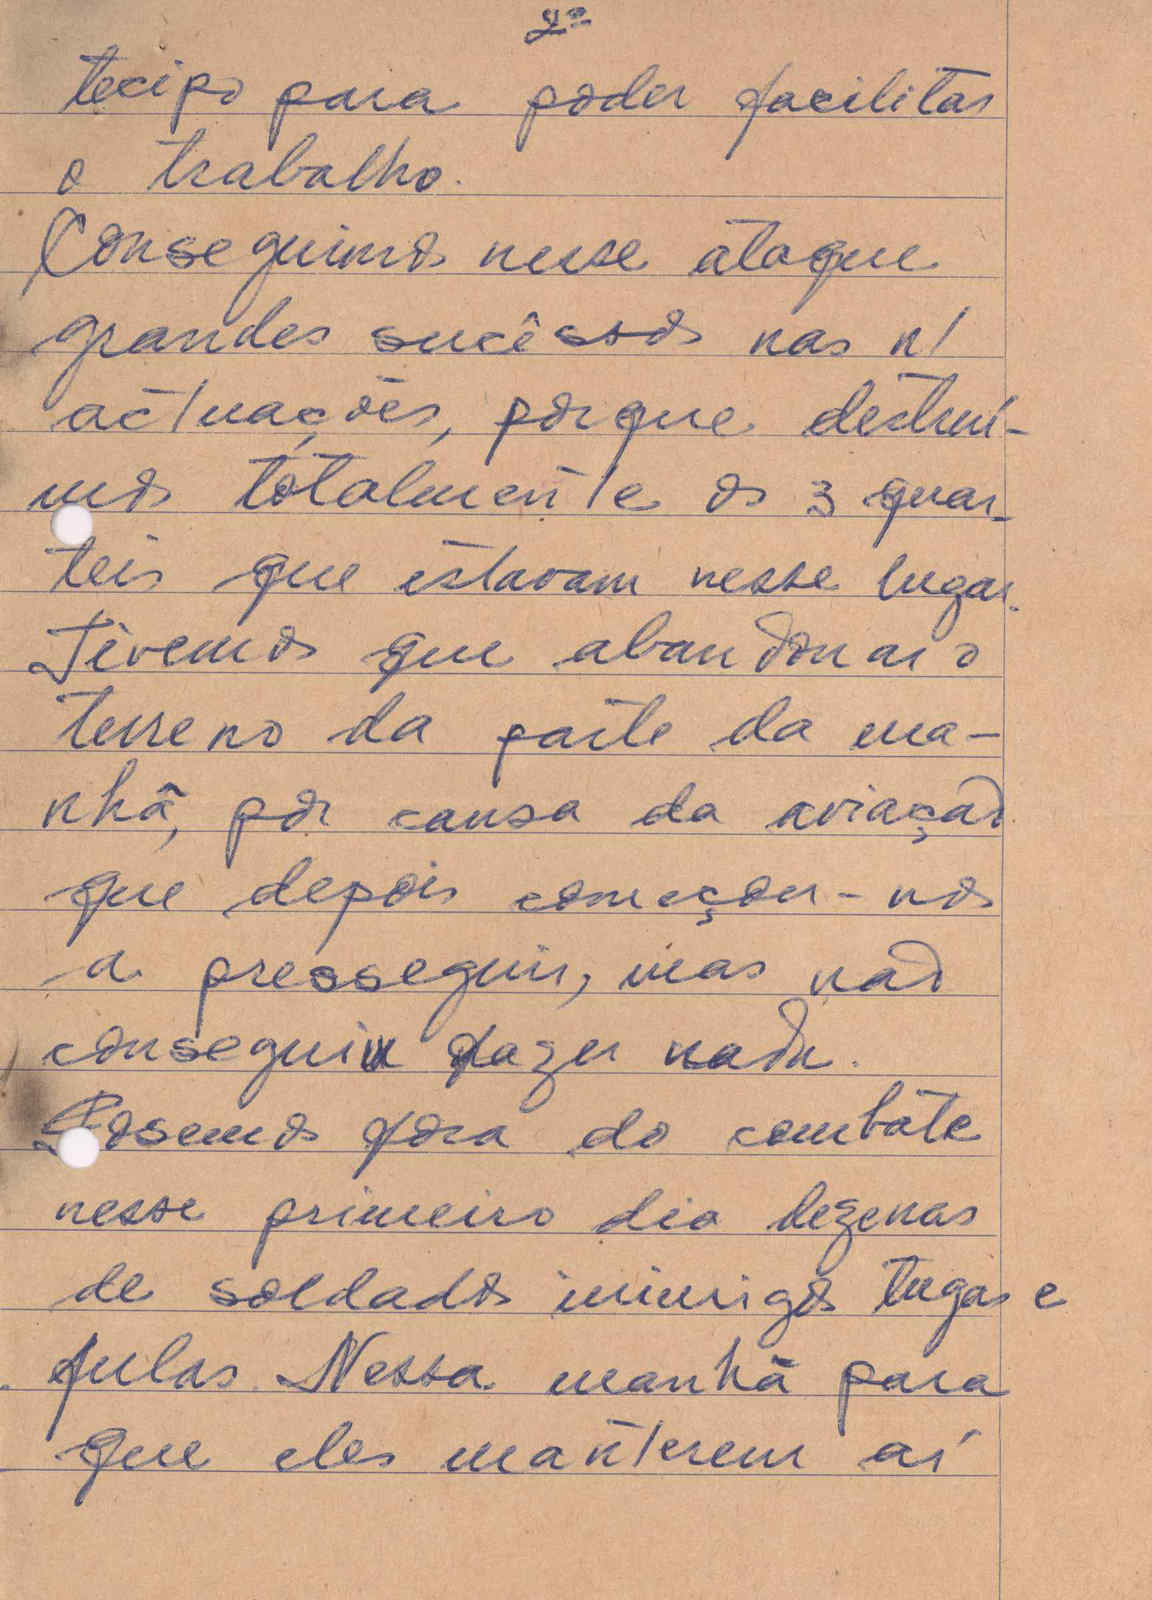 2º
tecipo para poder facilitar
o trabalho.
Conseguimos nesse ataque
grandes sucêssos nas n/
actuações, porque destruí-
mos totalmente os 3 quar-
teis que estavam nesse lugar.
Tivemos que abandonar o
terreno da parte da ma-
nhã, por causa da aviação
que depois começou-nos
a presseguir, mas não
conseguiu fazer nada.
Posemos fóra do combate
nesse primeiro dia dezenas
de soldados inimigos tugas e
fulas. Nessa manhã para
que eles manterem aí